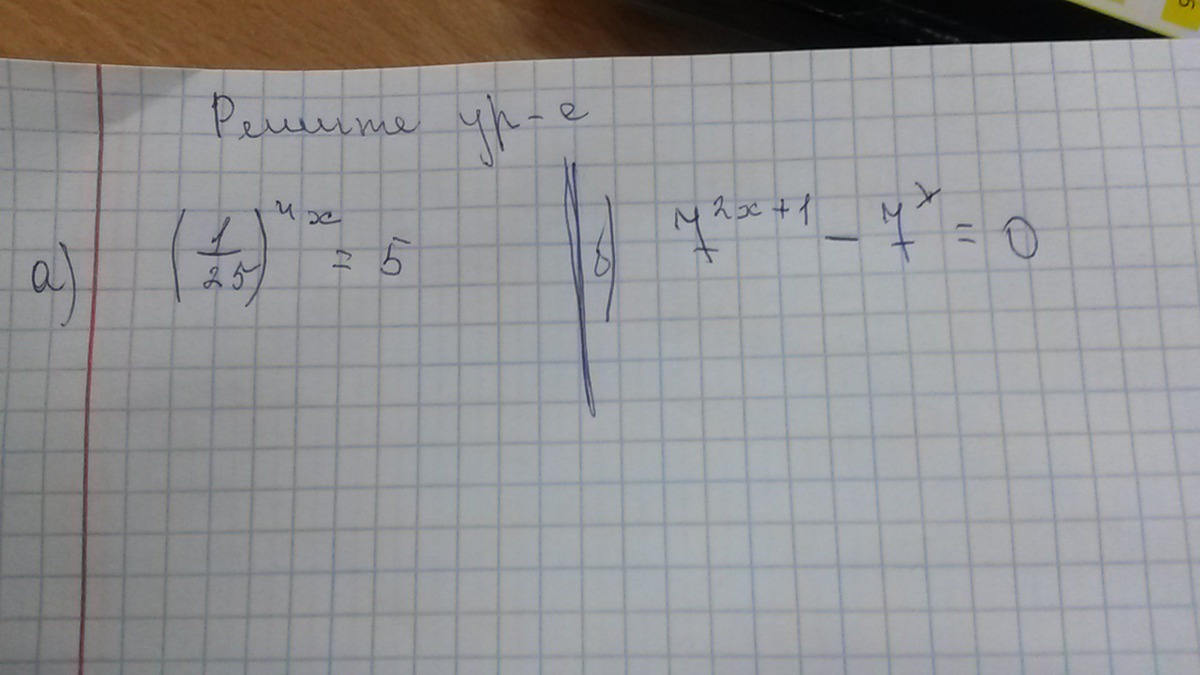 Решите ур-е
а) (1/25)^4x = 5
б) 7^2x+1 − 7^x = 0